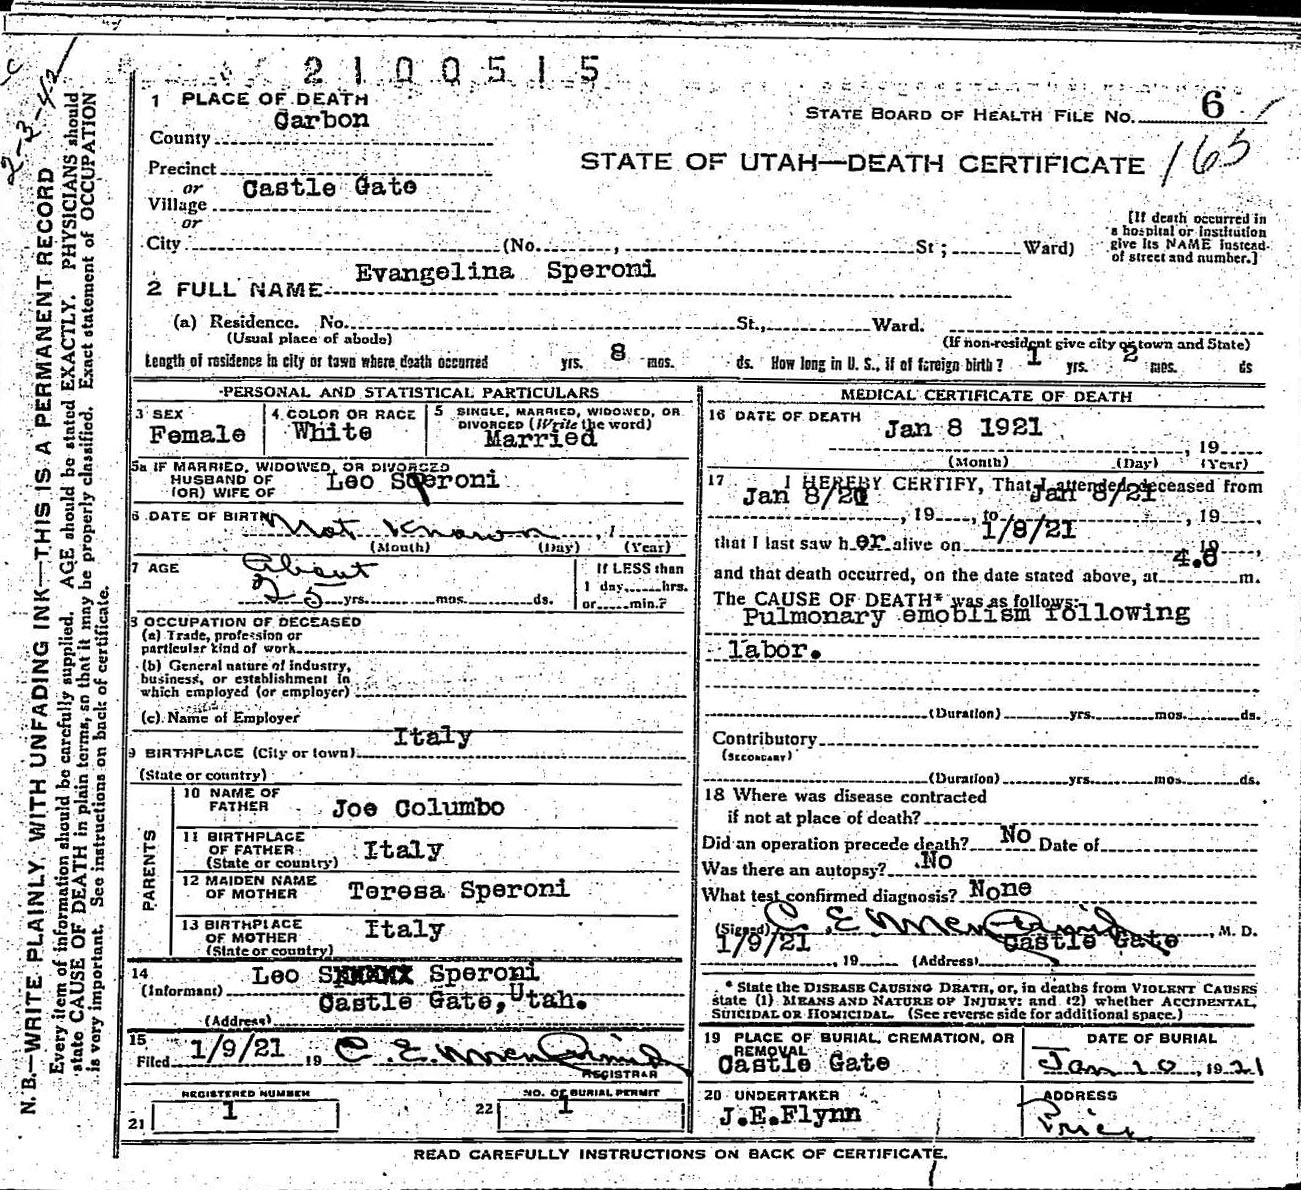 2100515
1 PLACE OF DEATH
Carbon
County
STATE BOARD OF HEALTH FILE No. 6
165
STATE OF UTAH—DEATH CERTIFICATE
Precinct
or Castle Gate
Village
or
City (No. , St ; Ward)
[If death occurred in
a hospital or institution
give its NAME instead
of street and number.]
Evangelina Speroni
2 FULL NAME
(a) Residence. No. St., Ward.
(Usual place of abode)
(If non-resident give city or town and State)
Length of residence in city or town where death occurred yrs. 8 mos. ds. How long in U. S., if of foreign birth? 1 yrs. 2 mos. ds
PERSONAL AND STATISTICAL PARTICULARS
3 SEX
Female
4 COLOR OR RACE
White
5 SINGLE, MARRIED, WIDOWED, OR
DIVORCED (Write the word)
Married
5a IF MARRIED, WIDOWED, OR DIVORCED
HUSBAND OF
(OR) WIFE OF Leo Speroni
6 DATE OF BIRTH Not Known , 1
(Month) (Day) (Year)
7 AGE About
25 yrs. mos. ds.
If LESS than
1 day, hrs.
or min.?
8 OCCUPATION OF DECEASED
(a) Trade, profession or
particular kind of work
(b) General nature of industry,
business, or establishment in
which employed (or employer)
(c) Name of Employer
Italy
9 BIRTHPLACE (City or town)
(State or country)
PARENTS
10 NAME OF
FATHER Joe Columbo
11 BIRTHPLACE
OF FATHER Italy
(State or country)
12 MAIDEN NAME
OF MOTHER Teresa Speroni
13 BIRTHPLACE
OF MOTHER Italy
(State or country)
14 Leo S Speroni
(Informant)
Castle Gate, Utah.
(Address)
15
Filed 1/9/21 19
REGISTRAR
REGISTERED NUMBER
21 1
NO. OF BURIAL PERMIT
22 1
MEDICAL CERTIFICATE OF DEATH
16 DATE OF DEATH
Jan 8 1921
, 19
(Month) (Day) (Year)
17 I HEREBY CERTIFY, That I attended deceased from
Jan 8/21 , 19 , to Jan 8/21 , 19
that I last saw her alive on 1/8/21 19 ,
and that death occurred, on the date stated above, at 4.0 m.
The CAUSE OF DEATH* was as follows:
Pulmonary emoblism following
labor.
(Duration) yrs. mos. ds.
Contributory
(SECONDARY)
(Duration) yrs. mos. ds.
18 Where was disease contracted
if not at place of death?
Did an operation precede death? No Date of
Was there an autopsy? No
What test confirmed diagnosis? None
(Signed) , M. D.
1/9/21 , 19 (Address) Castle Gate
* State the DISEASE CAUSING DEATH, or, in deaths from VIOLENT CAUSES
state (1) MEANS AND NATURE OF INJURY: and (2) whether ACCIDENTAL,
SUICIDAL OR HOMICIDAL. (See reverse side for additional space.)
19 PLACE OF BURIAL, CREMATION, OR
REMOVAL
Castle Gate
DATE OF BURIAL
Jan 10, 1921
20 UNDERTAKER
J.E.Flynn
ADDRESS
Price
READ CAREFULLY INSTRUCTIONS ON BACK OF CERTIFICATE.
2-3-42
N. B.—WRITE PLAINLY, WITH UNFADING INK—THIS IS A PERMANENT RECORD
Every item of information should be carefully supplied. AGE should be stated EXACTLY. PHYSICIANS should
state CAUSE OF DEATH in plain terms, so that it may be properly classified. Exact statement of OCCUPATION
is very important. See instructions on back of certificate.